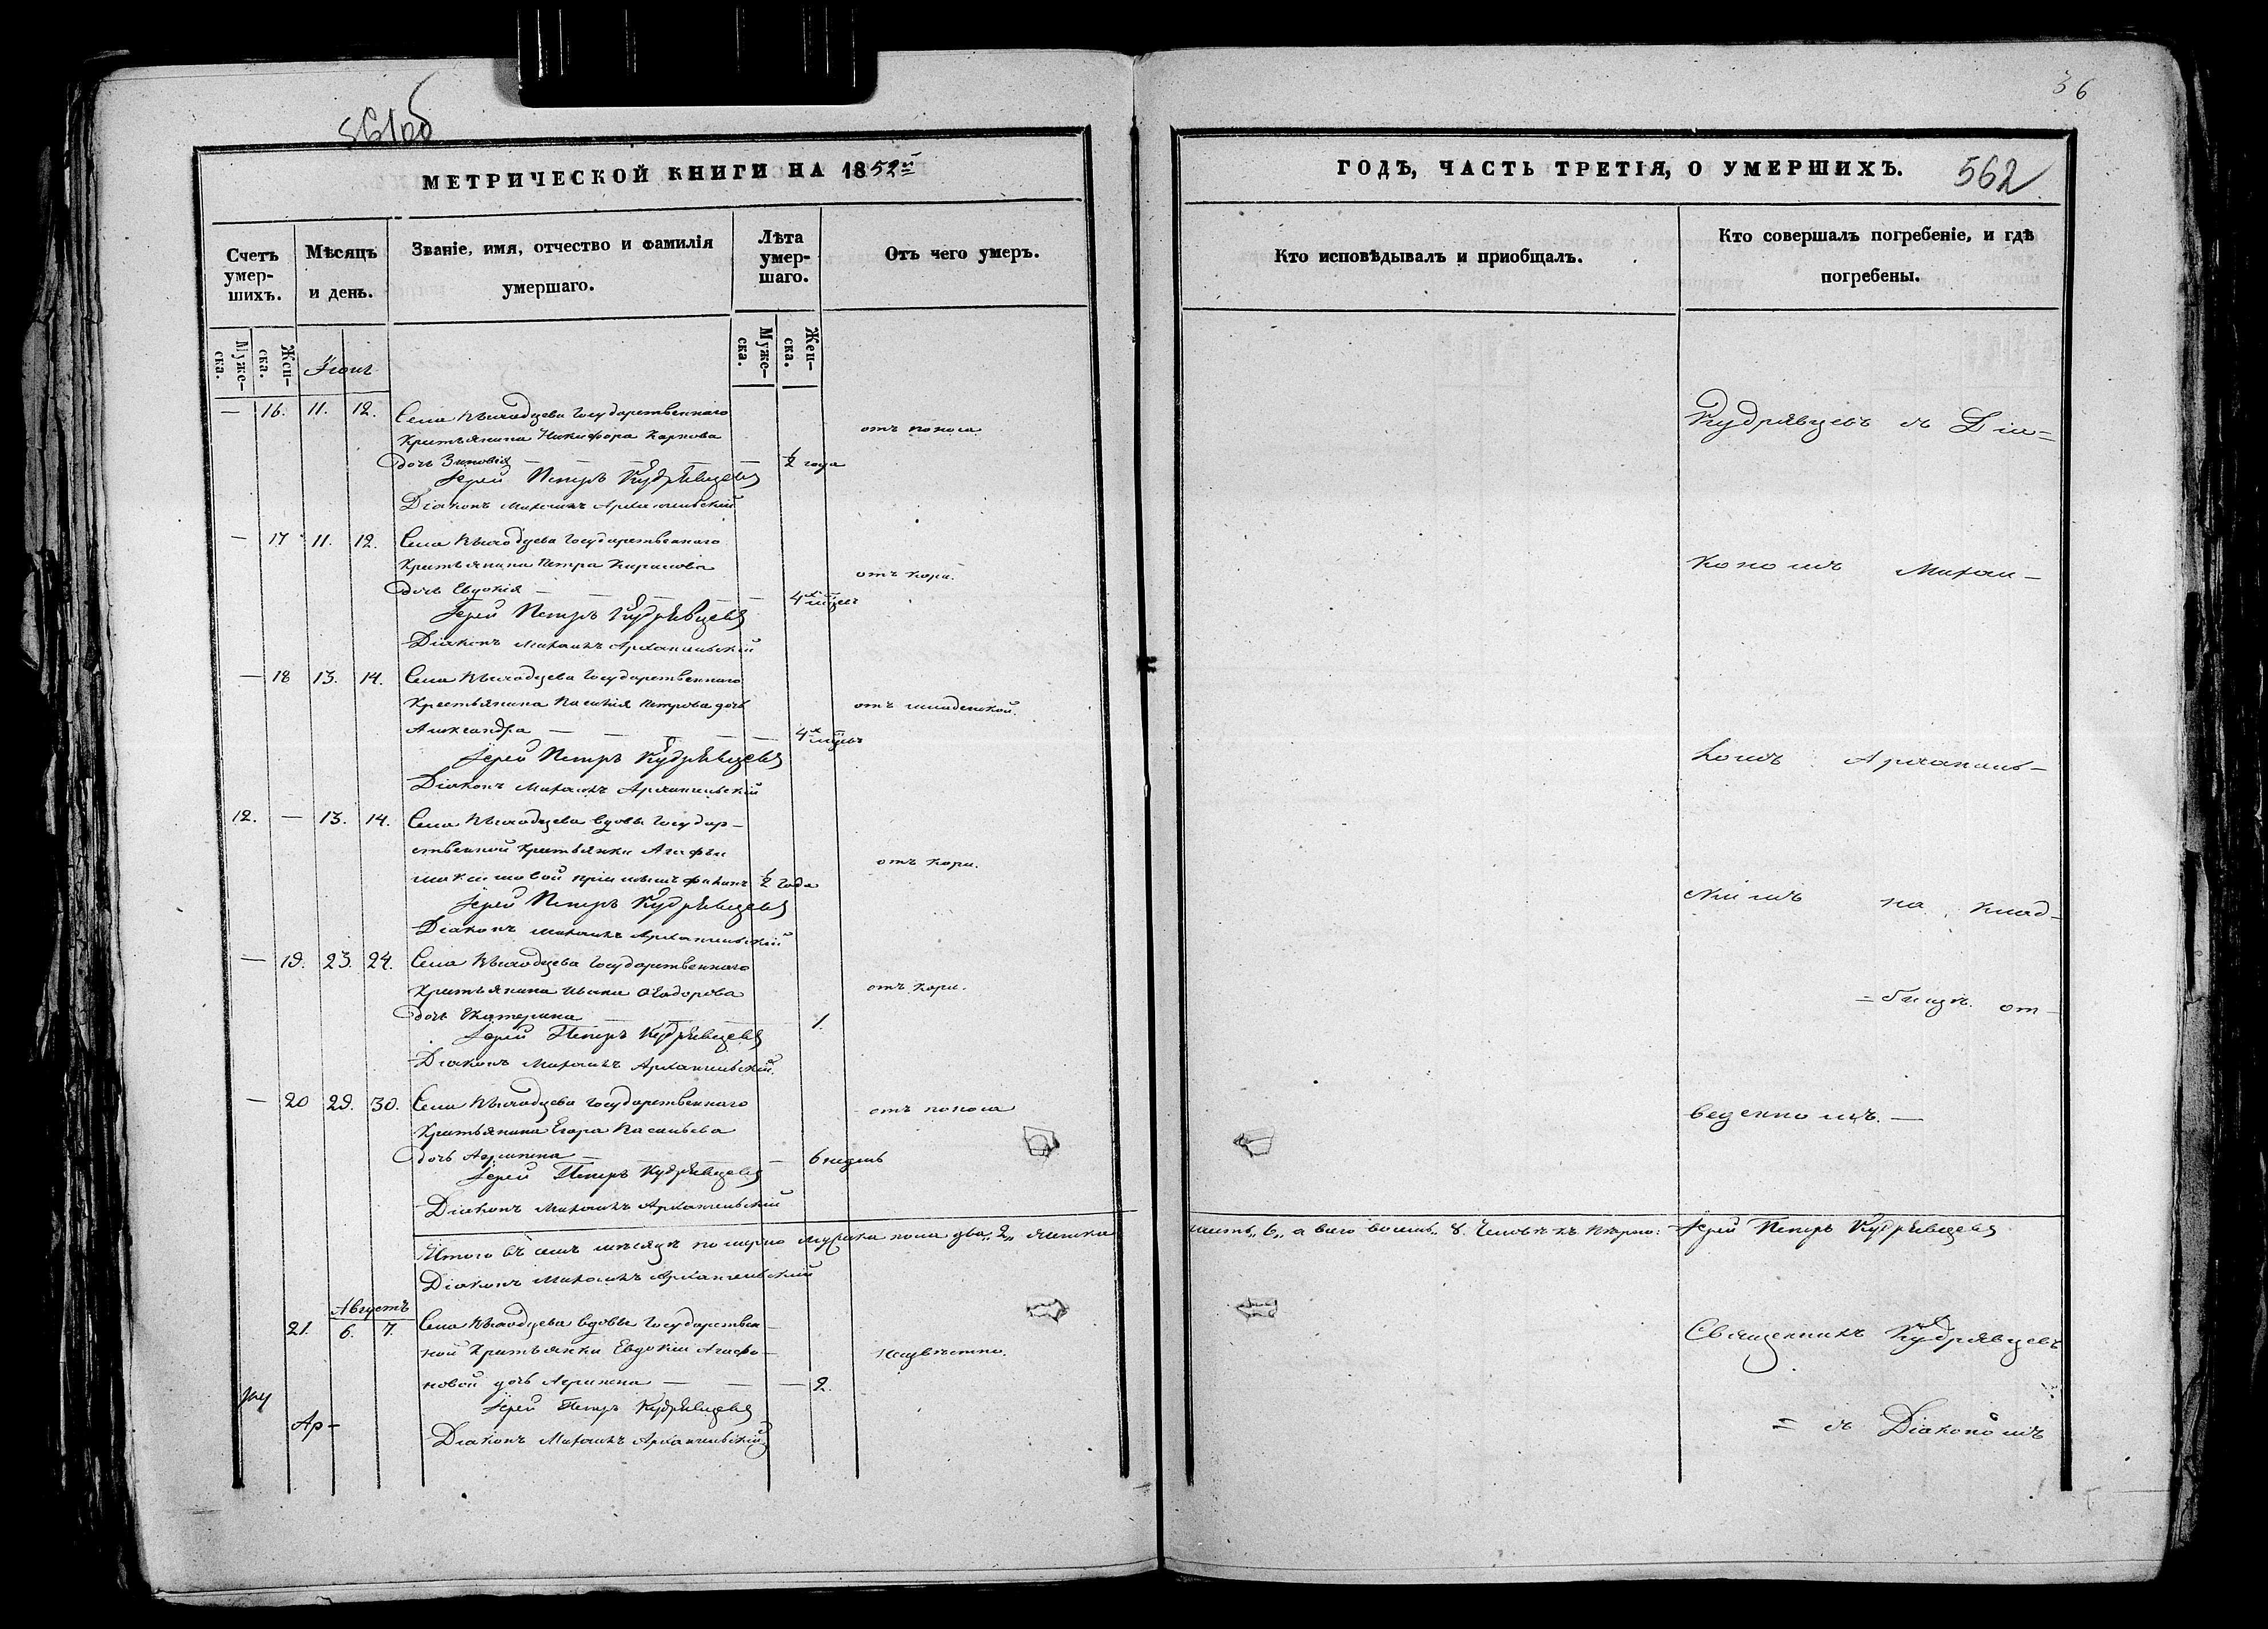 561об
36
МЕТРИЧЕСКОЙ КНИГИ НА 1852й
ГОДЪ, ЧАСТЬ ТРЕТІЯ, О УМЕРШИХЪ.
562
Счетъ умер-шихъ.
Мѣсяцъ и день.
Званіе, имя, отчество и фамилія умершаго.
Лѣта умер-шаго.
Отъ чего умеръ.
Кто исповѣдывалъ и приобщалъ.
Кто совершалъ погребеніе, и гдѣ погребены.
Муже-ска.
Жен-ска.
Муже-ска.
Жен-ска.
— 16. 11. 12. Села Государственнаго
Крестьянина Никифора Карпова
отъ поноса
дочь Зиновія — — — — ½ года
Іерей Петръ Кудрявцевъ
Діаконъ Михаилъ Архангельскій
— 17 11. 12. Села Государственнаго
Крестьянина Петра
отъ кори.
дочь Евдокія — — — — 4х мцевъ
Іерей Петръ Кудрявцевъ
Діаконъ Михаилъ Архангельскій
— 18 13. 14. Села Государственнаго
Крестьянина Василія Петрова дочь
отъ младенской.
Александра — — — — 4х мцевъ
Іерей Петръ Кудрявцевъ
Діаконъ Михаилъ Архангельскій
12. — 13. 14. Села вдовы Государ-
ственной Крестьянки Агафьи
отъ кори.
½ года
Іерей Петръ Кудрявцевъ
Діаконъ Михаилъ Архангельскій
— 19. 23. 24. Села Государственнаго
Крестьянина Ивана Ѳеодорова
отъ кори.
дочь Екатерина — — — 1.
Іерей Петръ Кудрявцевъ
Діаконъ Михаилъ Архангельскій.
— 20 29. 30. Села Государственнаго
отъ поноса
Крестьянина Егора Васильева
дочь Агрипена — — — 6 недель
Іерей Петръ Кудрявцевъ
Діаконъ Михаилъ Архангельскій
Итого въ семъ мѣсяцѣ померло мужеска пола два „2„ женска
Діаконъ Михаилъ Архангельскій
Августъ
21. 6. 7. Села вдовы Государствен-
ной Крестьянки Евдокіи Агафо-
неизвѣстно.
новой дочь Агрипена — — — 2.
Іерей Петръ Кудрявцевъ
Діаконъ Михаилъ Архангельскій
Ар-
Кудрявцевъ съ Діа=
кономъ Михаи-
ломъ Архангель-
скимъ на клад-
=бищѣ от-
веденномъ. —
шесть „6„ а всего восемь „8. Человѣкъ. Вѣрно: Іерей Петръ Кудрявцевъ
Священникъ Кудрявцевъ
= съ Діакономъ